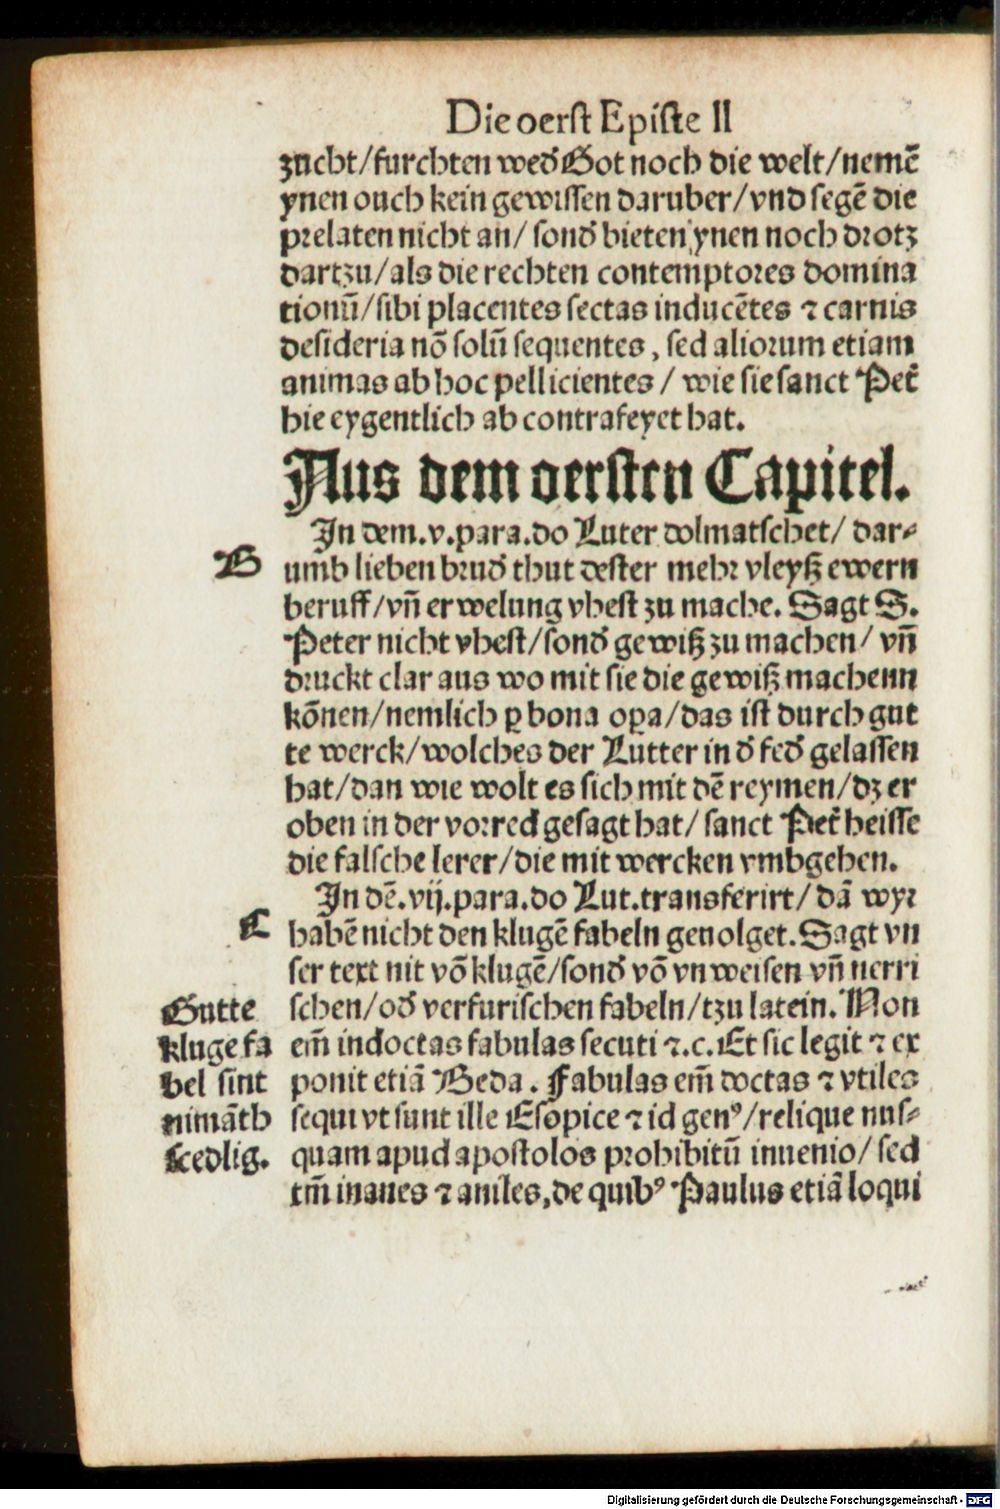 Die oerst Epiſte II
zucht/furchten wed̃ Got noch die welt/nemẽ
ynen ouch kein gewiſſen daruber/vnd ſegẽ die
prelaten nicht an/ ſond̃ bieten ynen noch drotz
dartzu/als die rechten contemptores domina
tionũ/ſibi placentes ſectas inducẽtes ⁊ carnis
deſideria nõ ſolũ ſequentes, ſed aliorum etiam
animas ab hoc pellicientes / wie ſie ſanct Pet̃
hie eygentlich ab contrafeyet hat.
Aus dem oerſten Capitel.
In dem.v.para.do Luter dolmatſchet/ dar⸗
B
umb lieben brud̃ thut deſter mehr vleyſz ewern
beruff/vñ erwelung vheſt zu mache. Sagt S.
Peter nicht vheſt/ſond̃ gewiſz zu machen/ vñ
druckt clar aus wo mit ſie die gewiſz machenn
kõnen/nemlich ꝑ bona oꝑa/das iſt durch gut
te werck/wolches der Lutter in d̃ fed̃ gelaſſen
hat/dan wie wolt es ſich mit dẽ reymen/dz er
oben in der vorred geſagt hat/ ſanct Pet̃ heiſſe
die falſche lerer/die mit wercken vmbgehen.
In dẽ.vij.para.do Lut.transferirt/ dã wyr
C
habẽ nicht den klugẽ fabeln geuolget. Sagt vn
ſer text nit võ klugẽ/ſond̃ võ vnweiſen vñ nerri
ſchen/od̃ verfuriſchen fabeln/tzu latein. Non
em̃ indoctas fabulas ſecuti ⁊.c. Et ſic legit ⁊ ex
ponit etiã Beda. Fabulas em̃ doctas ⁊ vtiles
ſequi vt ſunt ille Eſopice ⁊ id genꝰ/relique nuſ⸗
quam apud apoſtolos prohibitũ inuenio/ ſed
tm̃ inanes ⁊ aniles, de quibꝰ Paulus etiã loqui
Gutte
kluge fa
bel ſint
nimãth
ſcedlig.
Digitalisierung gefördert durch die Deutsche Forschungsgemeinschaft - DFG